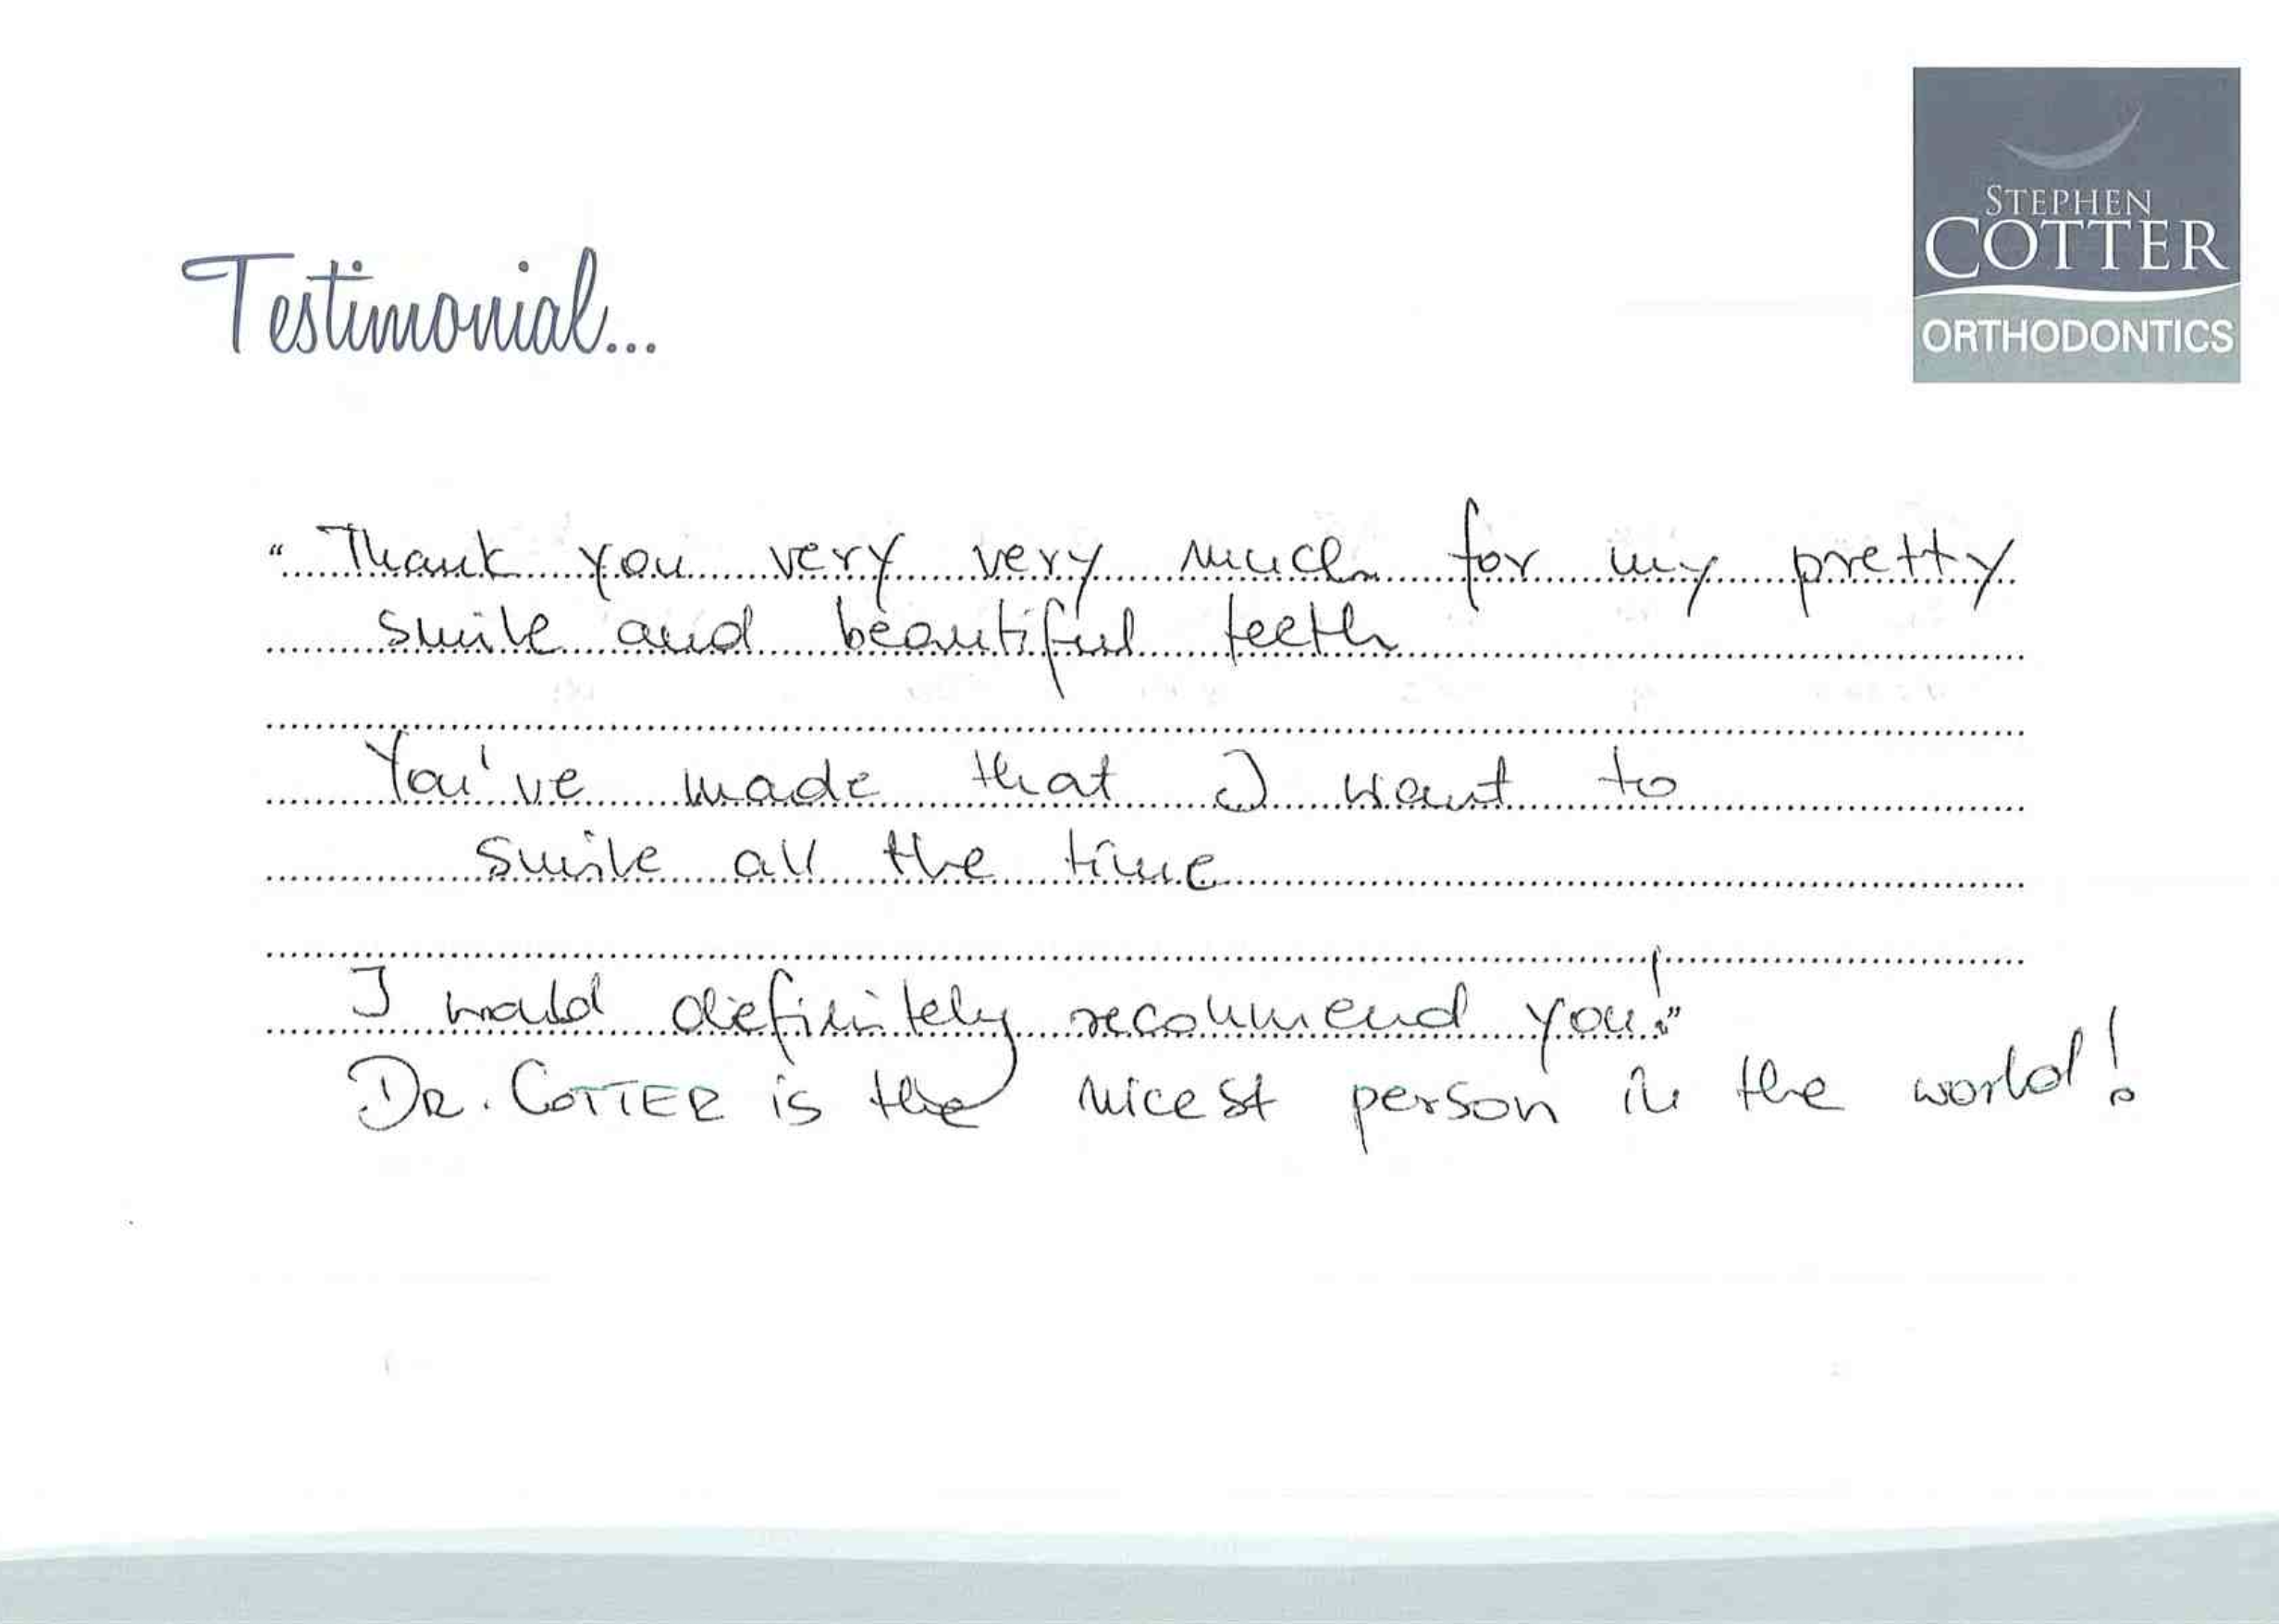 STEPHEN
COTTER
ORTHODONTICS
Testimonial...
"Thank you very very much for my pretty
smile and beautiful teeth
You've made that I want to
smile all the time
I would definitely recommend you!"
DR. COTTER is the nicest person in the world!